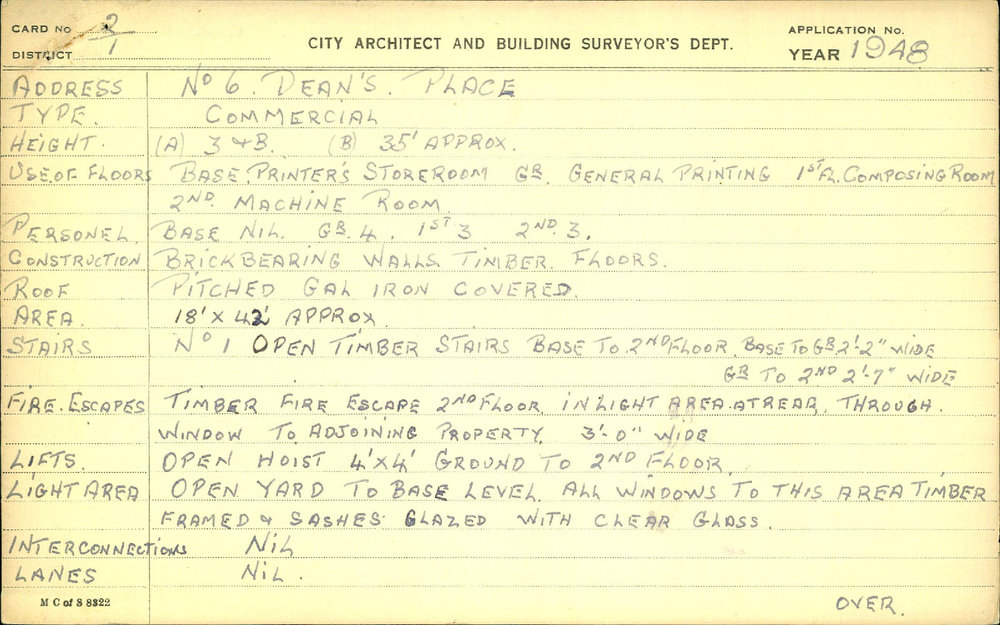 CARD NO 2/1
DISTRICT
CITY ARCHITECT AND BUILDING SURVEYOR'S DEPT.
APPLICATION NO.
YEAR 1948
ADDRESS NO 6. DEAN'S. PLACE
TYPE. COMMERCIAL
HEIGHT. (A) 3 & B. (B) 35' APPROX.
USE.OF FLOORS BASE. PRINTER'S STOREROOM GR. GENERAL PRINTING 1ST FL. COMPOSING ROOM
2ND. MACHINE ROOM.
PERSONEL. BASE NIL. GR. 4. 1ST 3 2ND. 3.
CONSTRUCTION BRICKBEARING WALLS TIMBER. FLOORS.
ROOF PITCHED GAL IRON COVERED.
AREA. 18' X 42' APPROX.
STAIRS NO 1 OPEN TIMBER STAIRS BASE TO. 2ND FLOOR. BASE TO GR. 2'-2" WIDE
GR TO 2ND 2'-7" WIDE
FIRE. ESCAPES TIMBER FIRE ESCAPE 2ND FLOOR. IN LIGHT AREA. AT REAR. THROUGH.
WINDOW TO ADJOINING PROPERTY. 3'-0" WIDE
LIFTS. OPEN HOIST 4' X 4' GROUND TO 2ND FLOOR.
LIGHT AREA OPEN YARD TO BASE LEVEL. ALL WINDOWS TO THIS AREA TIMBER
FRAMED & SASHES GLAZED WITH CLEAR GLASS.
INTERCONNECTIONS NIL
LANES NIL.
M C of S 8322
OVER.